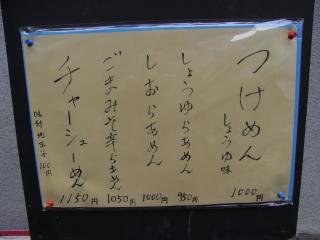 つけめん
しょうゆ味
1000円
しょうゆらあめん
950円
しおらあめん
1000円
ごまみそ辛らあめん
1050円
チャーシューめん
1150円
味付地玉子 100円